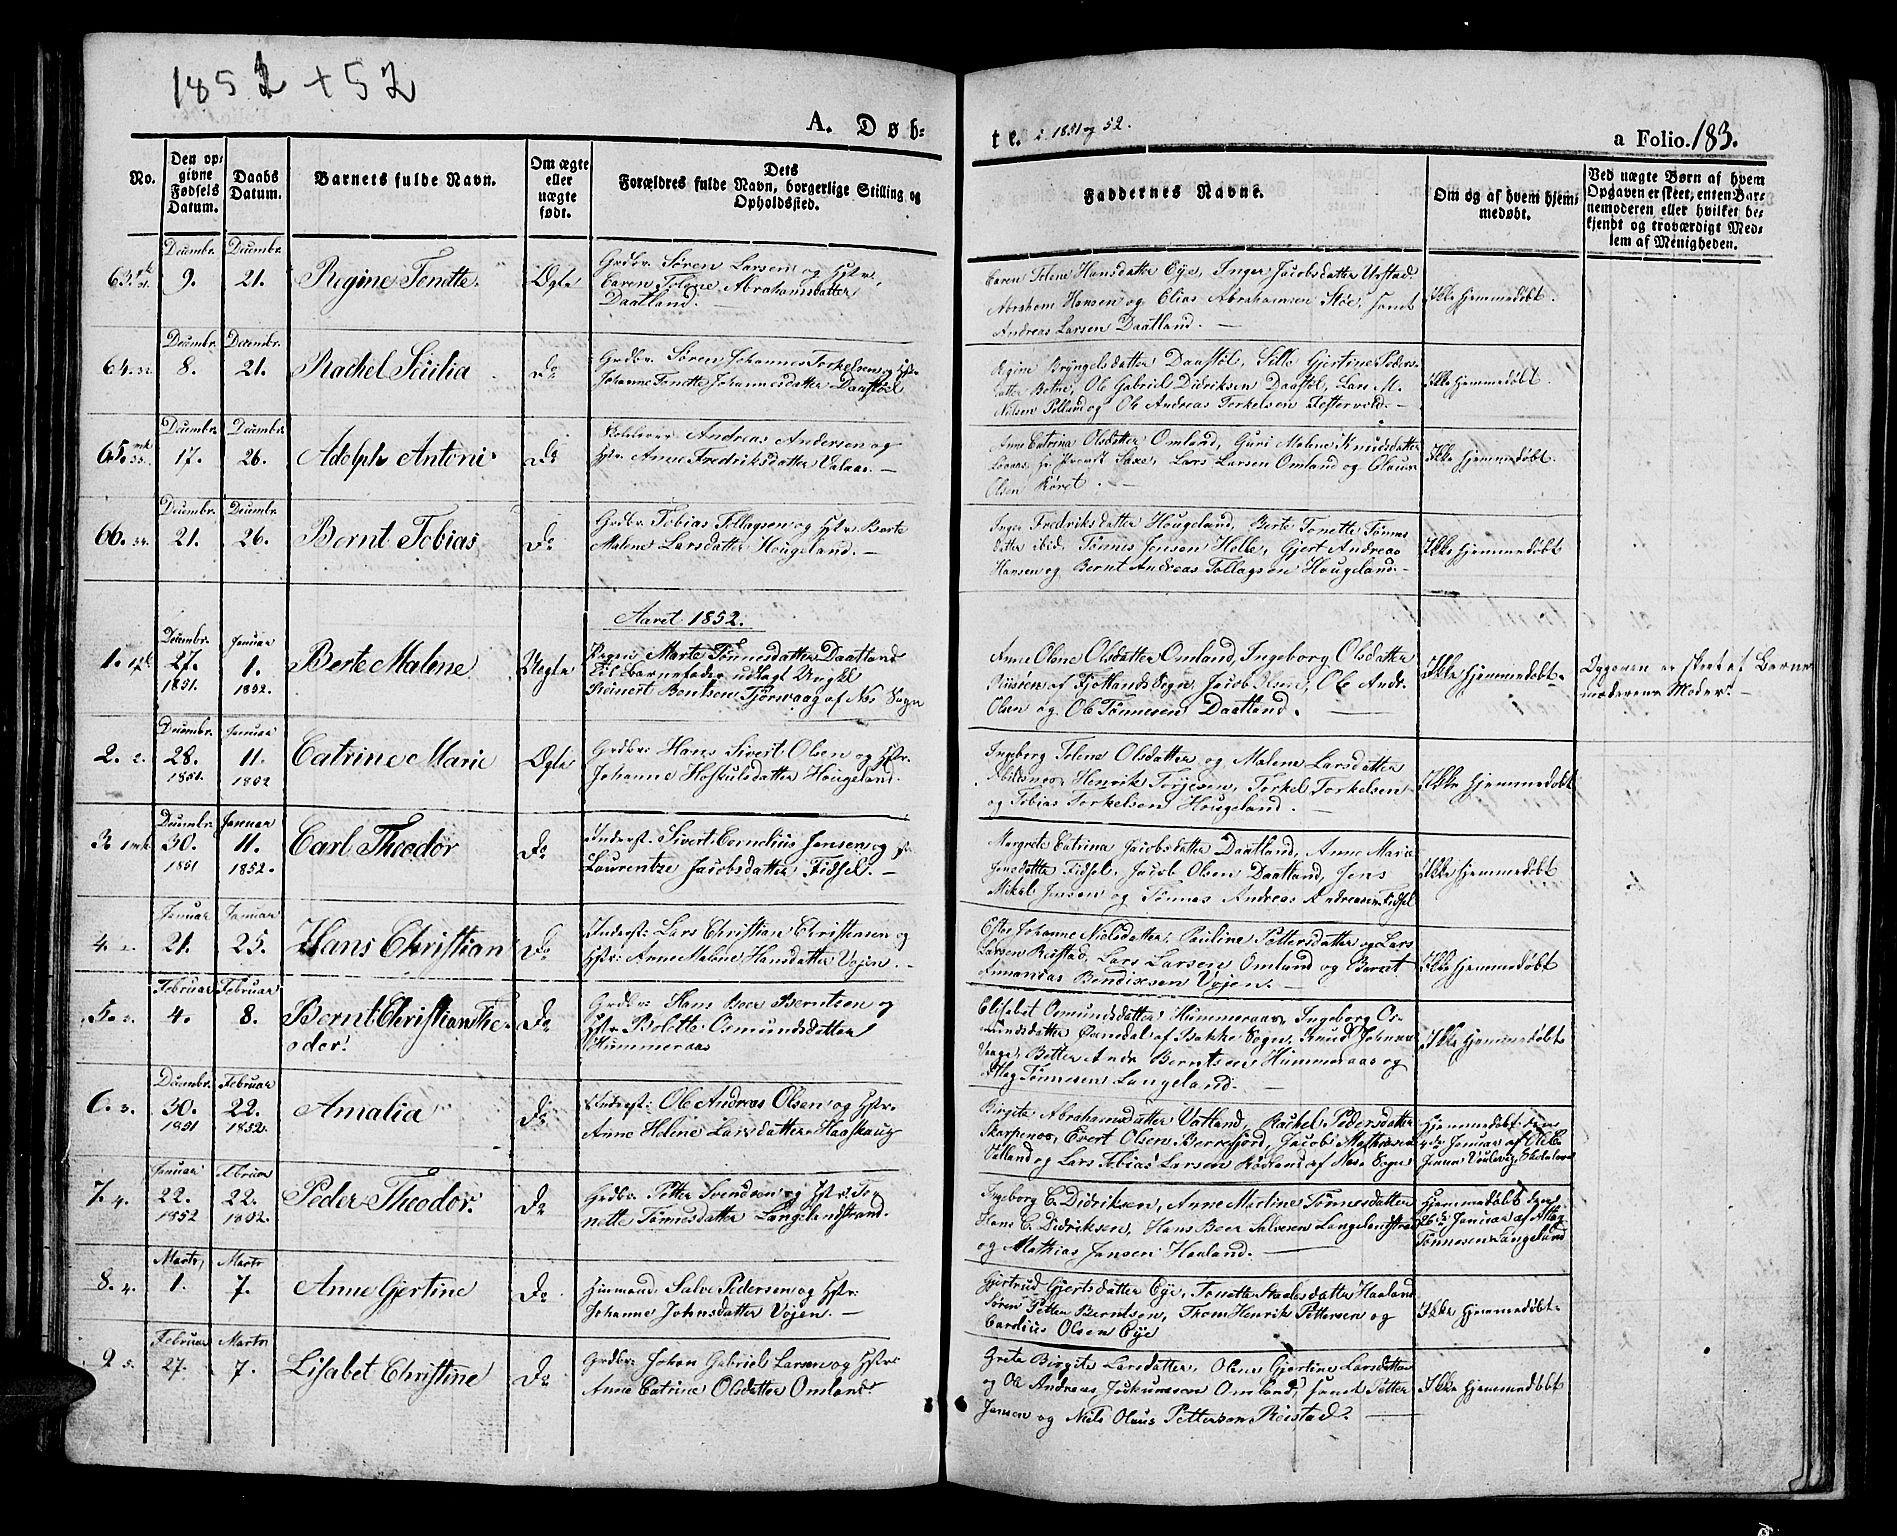 1851 + 52
A. Døb-
te. i 1851 og 52.
a Folio. 183.
No.
Den op-
givne
Fødsels
Datum.
Daabs
Datum.
Barnets fulde Navn.
Om ægte
eller
uægte
født.
Dets
Forældres fulde Navn, borgerlige Stilling og
Opholdssted.
Faddernes Navne.
Om og af hvem hjem-
medøbt.
Ved uægte Børn af hvem
Opgaven er skeet, enten Bar-
nemoderen eller hvilket be-
kjendt og troværdigt Med-
lem af Menigheden.
63.
Decembr.
9.
Decembr.
21.
Regine Tonette.
Ægte
Grdbr. Søren Larsen og Hstr.
Caren Toline Abrahamsdatter
Daatland.
Caren Tolene Hansdatter Eye, Inger Jacobsdatter Urstad.
Abraham Hansen og Elias Abrahamsen Støe, samt
Andreas Larsen Daatland. —
Ikke hjemmedøbt.
64.
Decembr.
8.
Decembr.
21.
Rachel Sicilia
Do
Grdbr. Søren Johannes Torkelsen og Hstr.
Johanne Tonette Johannesdatter Daastøl
Regine Bryngelsdatter Daastøl, Sille Gjertine Peders-
datter Botne, Ole Gabriel Didriksen Daastøl, Lars M.
Nilsen Pölland og Ole Andreas Torkelsen Festervold. —
Ikke hjemmedøbt.
65.
Decembr.
17.
Decembr.
26.
Adolph Antoni
Do
Andreas Andersen og
Hstr. Anne Fredriksdatter Valaas. —
Anne Catrina Olsdatter Omland, Guri Malene Knudsdatter
Hr Provst Saxe, Lars Larsen Omland og Olaus
Olsen Röret. —
Ikke hjemmedøbt.
66.
Decembr.
21.
Decembr.
26.
Bernt Tobias
Do
Grdbr. Tobias Tollagsen og Hstr. Berte
Malene Larsdatter Hougeland. —
Inger Fredriksdatter Hougeland, Berte Tonette Tønnes-
datter ibid, Tønnes Jensen Helle, Gjert Andreas
Hansen og Bernt Andreas Tollagsen Hougeland. —
Ikke hjemmedøbt
Aaret 1852.
1.
Decembr.
27.
1851.
Januar
1.
1852.
Berte Malene
Uegte
Pigen Marte Tønnesdatter Daatland
Til Barnefader udlagt Ungkl
Reinert Berntsen Tjørsvaag af Nes Sogn
Anne Oline Olsdatter Omland, Ingeborg Olsdatter
af Fjotlands Sogn, Jacob Olsen, Ole Andr.
Olsen og Ole Tønnesen Daatland. —
Ikke hjemmedøbt —
Opgaven er skeet af Barne-
moderens Moder. —
2.
Decembr.
28.
1851.
Januar
11.
1852
Catrine Marie
Ægte
Grdbr: Hans Sivert Olsen og Hstr.
Johanne Hostulsdatter Hougeland.
Ingeborg Tolene Olsdatter og Malene Larsdatter
Abelsnes, Henrik Torjesen, Torkel Torkelsen
og Tobias Torkelsen Hougeland. —
Ikke hjemmedøbt
3.
Decembr.
30.
1851
Januar
11.
1852.
Carl Theodor
Do
Inderst: Sivert Cornelius Jensen og Hst.
Laurentze Jacobsdatter Fidsel. —
Margrete Catrina Jacobsdatter Daatland, Anne Marie
Jensdatter Fidsel, Jacob Olsen Daatland, Jens
Mikel Jensen og Tønnes Andreas Andreasen Fidsel
Ikke hjemmedøbt
4.
Januar
21.
Januar
25.
Hans Christian
Do
Inderst: Lars Christian Christensen og
Hstr: Anne Malene Hansdatter Vojen. —
Ester Johanne Nielsdatter, Pauline Pettersdatter og Lars
Larsen Reistad, Lars Larsen Omland og Bernt
Annanias Bendiksen Vojen. —
Ikke hjemmedøbt
5.
Februar
4.
Februar
8.
Bernt Christian The-
odor.
Do
Grdbr: Hans Beer Berntsen og
Hstr. Bolette Osmundsdatter
Hummeraas
Elisabet Osmundsdatter Hummeraas, Ingeborg Os-
mundsdatter af Bakke Sogn, Knud Johnsen
Berntsen Hummeraas og
Atlag Tønnesen Langeland. —
Ikke hjemmedøbt
6.
Decembr.
30.
1851
Februar
22.
1852.
Amalia
Do
Inderst: Ole Andreas Olsen og Hstr.
Anne Helene Larsdatter Haaskaug
Birgite Abrahamsdatter Vatland, Rachel Pedersdatter
Skarpenos, Evert Olsen Berrefjord, Jacob Mathiasen
Vatland og Lars Tobias Larsen Rødland af Nes Sogn
Hjemmedøbt den
4de Januar af Ole
Jensen
7.
Januar
22.
1852
Februar
22.
1852.
Peder Theodor.
Do
Grdbr. Petter Svendsen og Hstr. To-
nette Tønnesdatter Langelandstrand.
Ingeborg E. Didriksen, Anne Martine Tønnesdatter
Hans C. Didriksen, Hans Beer Salvesen Langelandstrand
og Mathias Jansen Haaland. —
Hjemmedøbt den
26de Januar af Atlag
Tønnesen Langeland
8.
Marts
1.
Marts
7.
Anne Gjertine
Do
Huusmand Salve Pedersen og Hstr:
Johanne Johnsdatter Vojen. —
Gjertrud Gjertsdatter Eye, Tonette Staalesdatter Haaland
Søren Petter Berntsen, Thom Henrik Pettersen og
Cardius Olsen Eye
Ikke hjemmedøbt
9.
Februar
27.
Marts
7.
Lisabet Christine
Do
Grdbr: Johan Gabriel Larsen og Hstr:
Anne Catrine Olsdatter Omland.
Grete Birgite Larsdatter, Olene Gjertine Larsdatter
og Ole Andreas Jochumsen Omland, samt Petter
Jansen og Niels Olaus Pettersen Reistad. —
Ikke hjemmedøbt